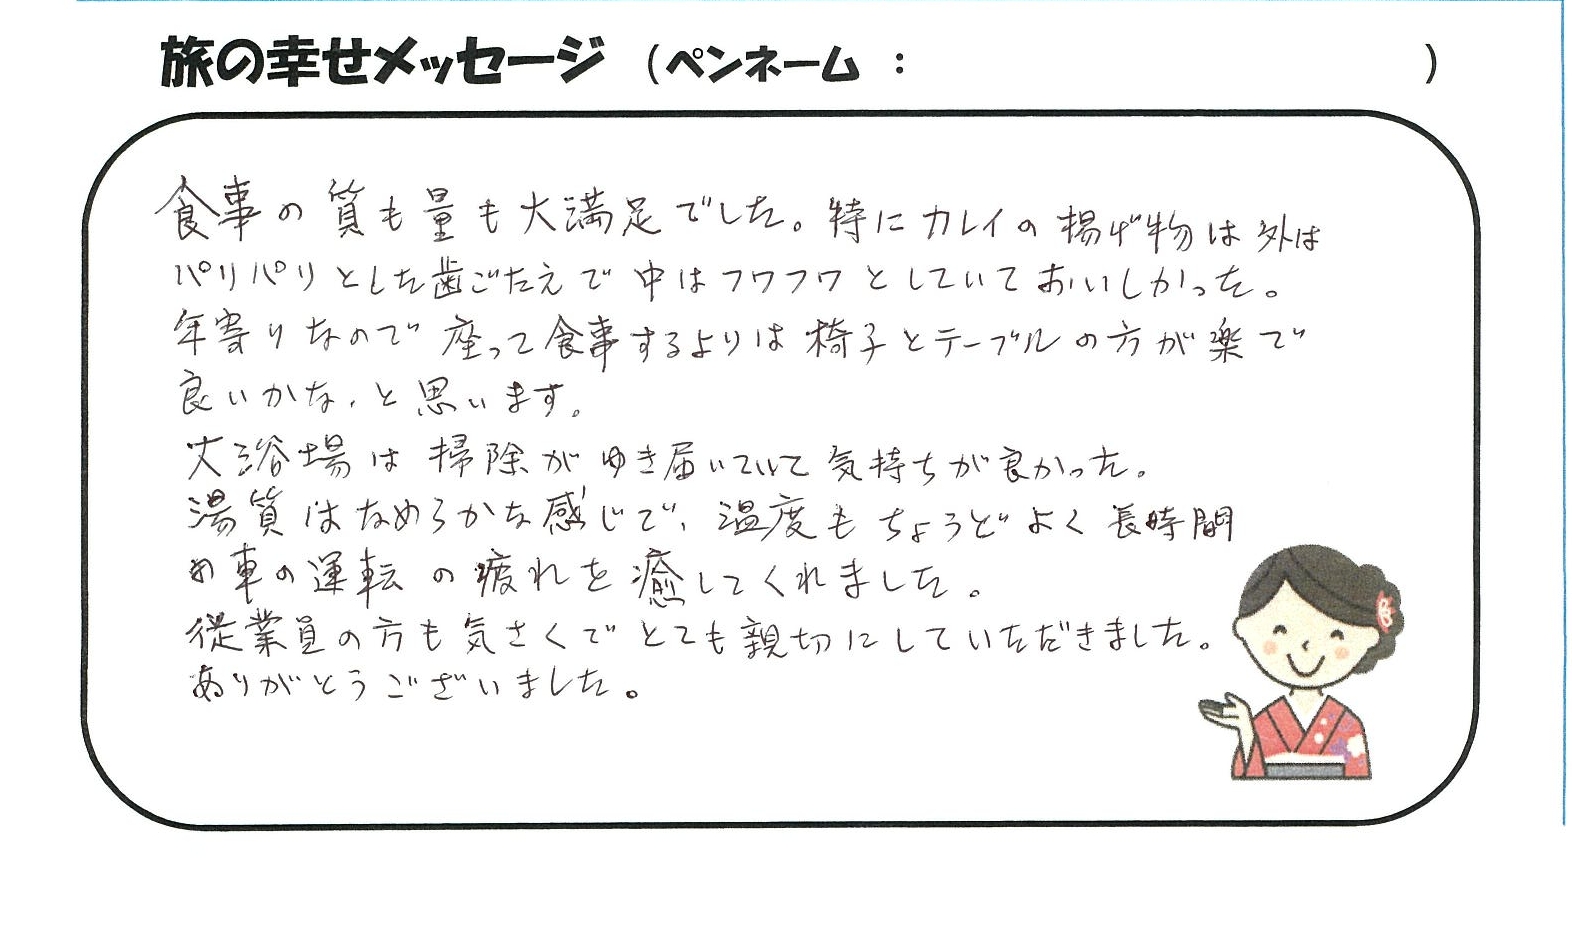 旅の幸せメッセージ （ペンネーム ： ）
食事の質も量も大満足でした。特にカレイの揚げ物は外は
パリパリとした歯ごたえで中はフワフワとしていておいしかった。
年寄りなので座って食事するよりは椅子とテーブルの方が楽で
良いかな、と思います。
大浴場は掃除がゆき届いていて気持ちが良かった。
湯質はなめらかな感じで、温度もちょうどよく長時間
の車の運転の疲れを癒してくれました。
従業員の方も気さくでとても親切にしていただきました。
ありがとうございました。